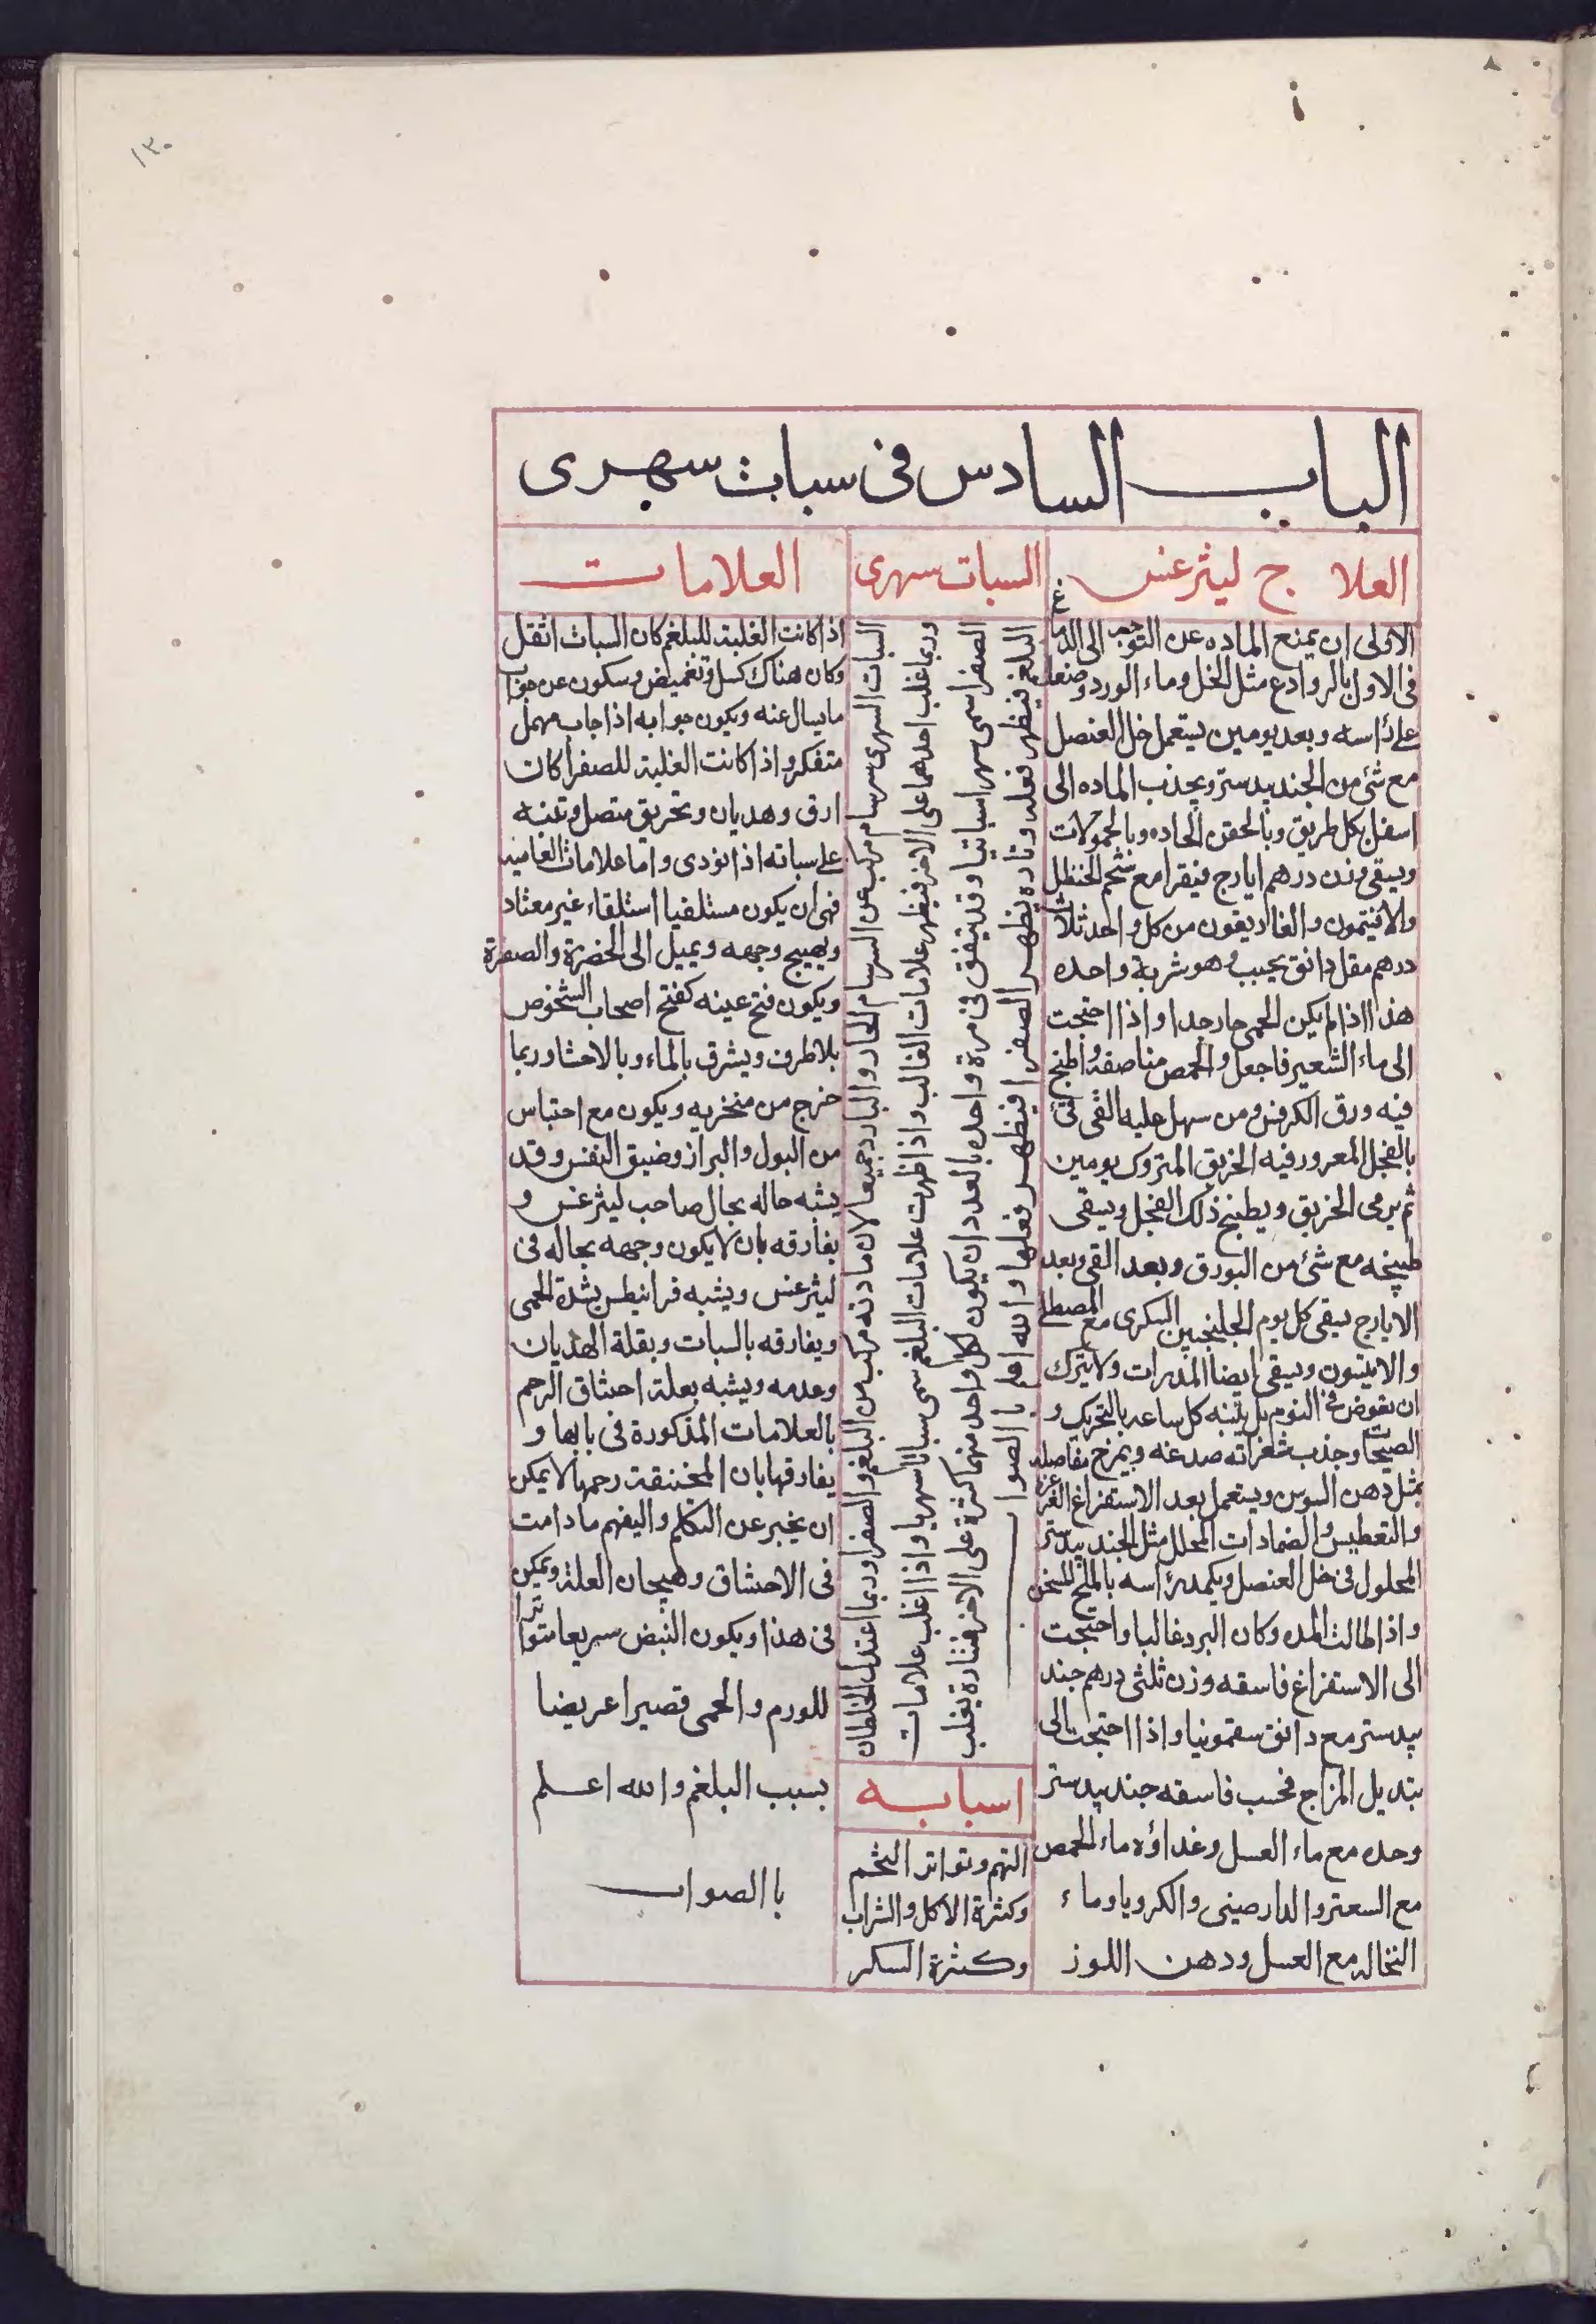 ١٣٠
الباب السادس فى سبات سهرى
العلاج ليثرغس
الاولى ان يمنع الماده عن التوجه الى الدماغ
فى الاول بالروادع مثل الخل وماء الورد وضعا
على راسه وبعد يومين يستعمل خل العنصل
مع شئ من الجندبيدستر ويجذب الماده الى
اسفل بكل طريق وبالحقن الحاده وبالحمولات
ويسقى وزن درهم ايارج فيقرا مع شحم الحنظل
والافيتمون والغاريقون من كل واحد ثلاث
درهم مقل دانق يحبب وهو شربة واحده
هذا اذا لم يكن الحمى حار جدا واذا احتجت
الى ماء الشعير فاجعل والحمص مناصفه واطبخ
فيه ورق الكرفس ومن سهل عليه القى
بالفجل المغرور فيه الخربق المتروك يومين
ثم يرمى الخربق ويطبخ ذلك الفجل ويسقى
طبيخه مع شئ من البورق وبعد القى وبعد
الايارج يسقى كل يوم الجلنجبين السكرى مع المصطكى
والانيسون ويسقى ايضا المدرات ولا يترك
ان يغوض فى النوم بل ينبه كل ساعه بالتحريك و
الصيحات وجذب شعراته صدغه ويمرخ مفاصله
بمثل دهن السوسن ويستعمل بعد الاستفراغ الغرغره
والتعطيس والضمادات المحلل مثل الجندبيدستر
المحلول فى خل العنصل ويكمد راسه بالملح المسخن
واذا طالت المده وكان البرد غالبا واحتجت
الى الاستفراغ فاسقه وزن ثلثى درهم جند
بيدستر مع دانق سقمونيا واذا احتجت الى
تبديل المزاج فحسب فاسقه جندبيدستر
وحده مع ماء العسل وغداؤه ماء الحمص
مع السعتر والدارصينى والكرويا وماء
النخاله مع العسل ودهن اللوز
السبات سهرى
السبات السهرى سرسام مركب عن السرسام الحار والبارد جميعا لان مادته مركب من البلغم والصفرا وربما اعتدل الخلطان
وربما غلب احدهما على الاخر فيظهر علامات الغالب واذا ظهرت علامات البلغم سمى سباتا سهريا واذا اغلب علامات
الصفرا سمى سهرا سباتيا وقد يتفق فى مرة واحده بالعدد ان يكون لكل واحد منهما كثرة على الاخر فتارة يغلب
البلغم فيظهر فعله وتاره يظهر الصفرا فيظهر فعلها والله اعلم با الصوا
اسبابه
النهم وتواتر التخم
وكثرة الاكل والشراب
وكثرة السكر
العلامات
اذا كانت الغلبة للبلغم كان السبات اثقل
وكان هناك كسل وتغميض وسكون عن جواب
ما يسال عنه ويكون جوابه اذا جاب مهمل
متفكر واذا كانت الغلبة للصفرا كان
ارق وهديان وتحريق متصل وتنبه
على سباته اذا نودى واما علامات العاميه
فهى ان يكون مستلقيا استلقاء غير معتاد
ويهيج وجهه ويميل الى الخضرة والصفرة
ويكون فتح عينه كفتح اصحاب الشخوص
بلا طرف ويشرق بالماء وبالاحشا وربما
خرج من منخريه ويكون مع احتباس
من البول والبراز وضيق النفس وقد
يشبه حاله بحال صاحب ليثرغس و
يفارقه بان لا يكون وجهه بحاله فى
ليثرغس ويشبه فرانيطس بشدة الحمى
ويفارقه بالسبات وبقلة الهذيان
وعدمه ويشبه بعلة احتناق الرحم
بالعلامات المذكورة فى بابها و
يفارقها بان المختنقة رحمها لا يمكن
ان يخبر عن التكلم واليفهم ما دامت
فى الاحتناق وهيجان العلة ويمكن
فى هذا ويكون النبض سريعا متواترا
للورم والحمى قصيرا عريضا
بسبب البلغم والله اعلم
با الصواب